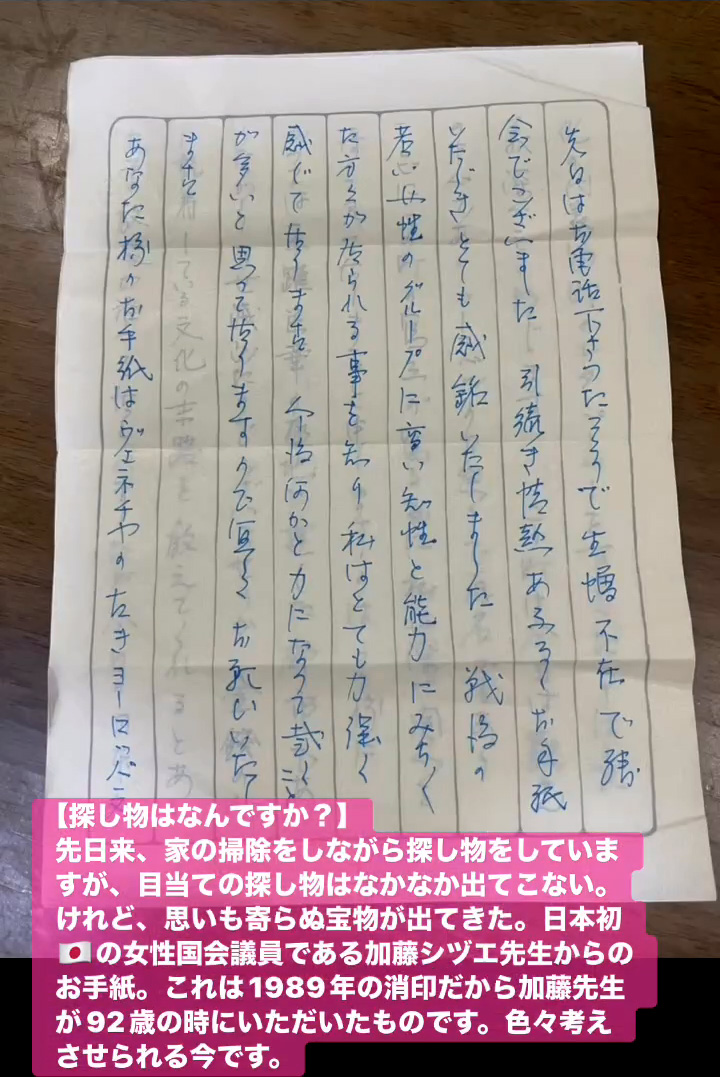 先日はお電話下さったそうで生憎不在で残
念でございました 引続き情熱あふるゝお手紙
いたゞきとても感銘いたしました 戦後の
若い女性のグループに高い知性と能力にみち〱
た方々が居られる事を知り私はとても力強く
感じて居ります 今後何かと力になって戴くこと
が多いと思って居りますので宜しくお願いいたし
ます
している文化の末路を教えてくれるとあ
あなた様のお手紙はヴェネチヤの ヨーロッパ文
【探し物はなんですか？】
先日来、家の掃除をしながら探し物をしていま
すが、目当ての探し物はなかなか出てこない。
けれど、思いも寄らぬ宝物が出てきた。日本初
🇯🇵の女性国会議員である加藤シヅエ先生からの
お手紙。これは1989年の消印だから加藤先生
が92歳の時にいただいたものです。色々考え
させられる今です。